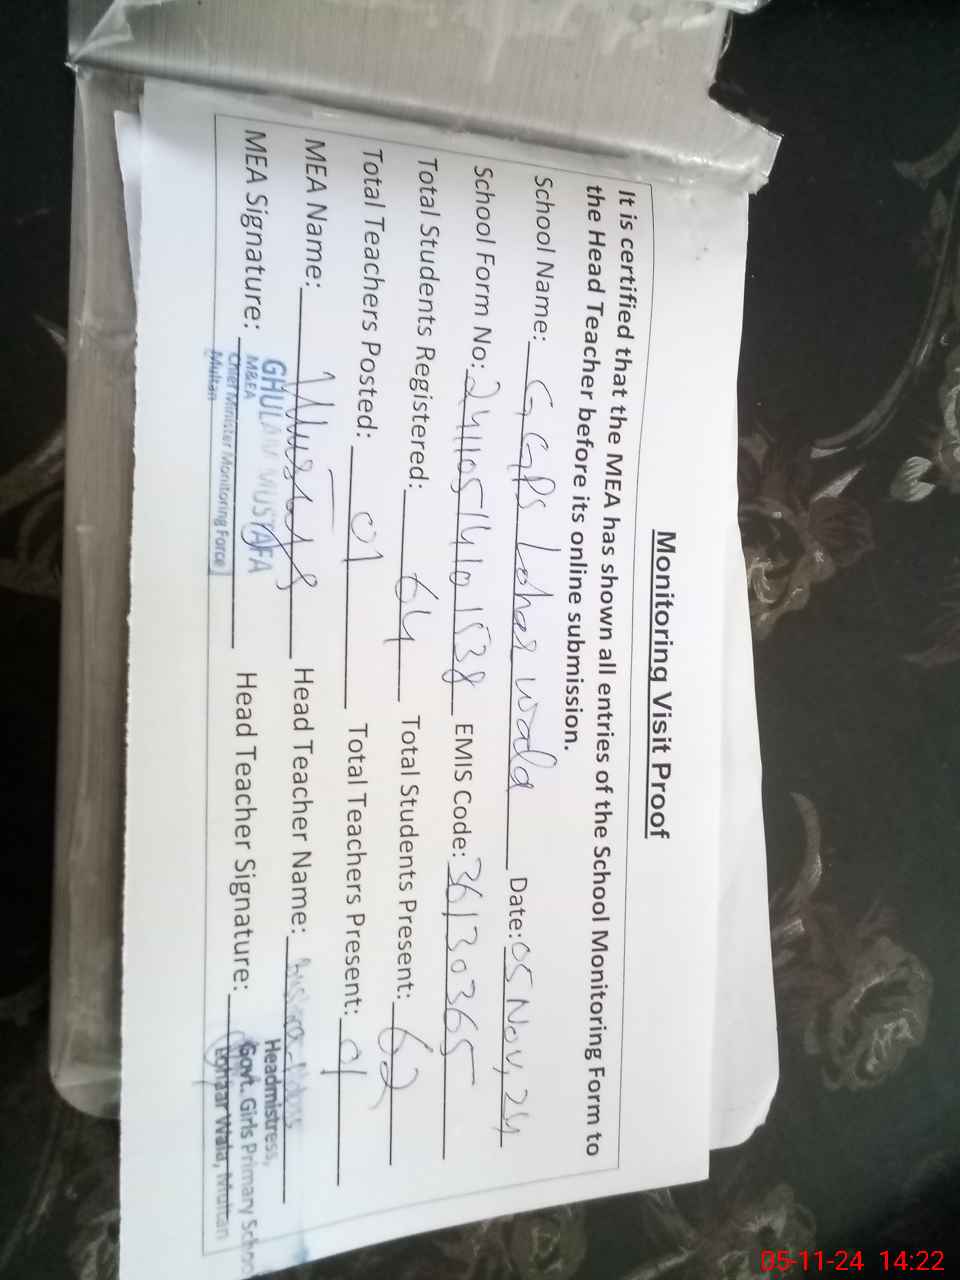 Monitoring Visit Proof
It is certified that the MEA has shown all entries of the School Monitoring Form to
the Head Teacher before its online submission.
School Name: GGPS Lohar wala Date: 05 Nov, 24
School Form No: 24110514101538 EMIS Code: 36130365
Total Students Registered: 64 Total Students Present: 62
Total Teachers Posted: 01 Total Teachers Present: 01
MEA Name: Mustafa Head Teacher Name:
MEA Signature: Head Teacher Signature:
GHULAM MUSTAFA
M&EA
Chief Minister Monitoring Force
Multan
Headmistress,
Govt. Girls Primary School
Lohaar Wala, Multan
05-11-24 14:22